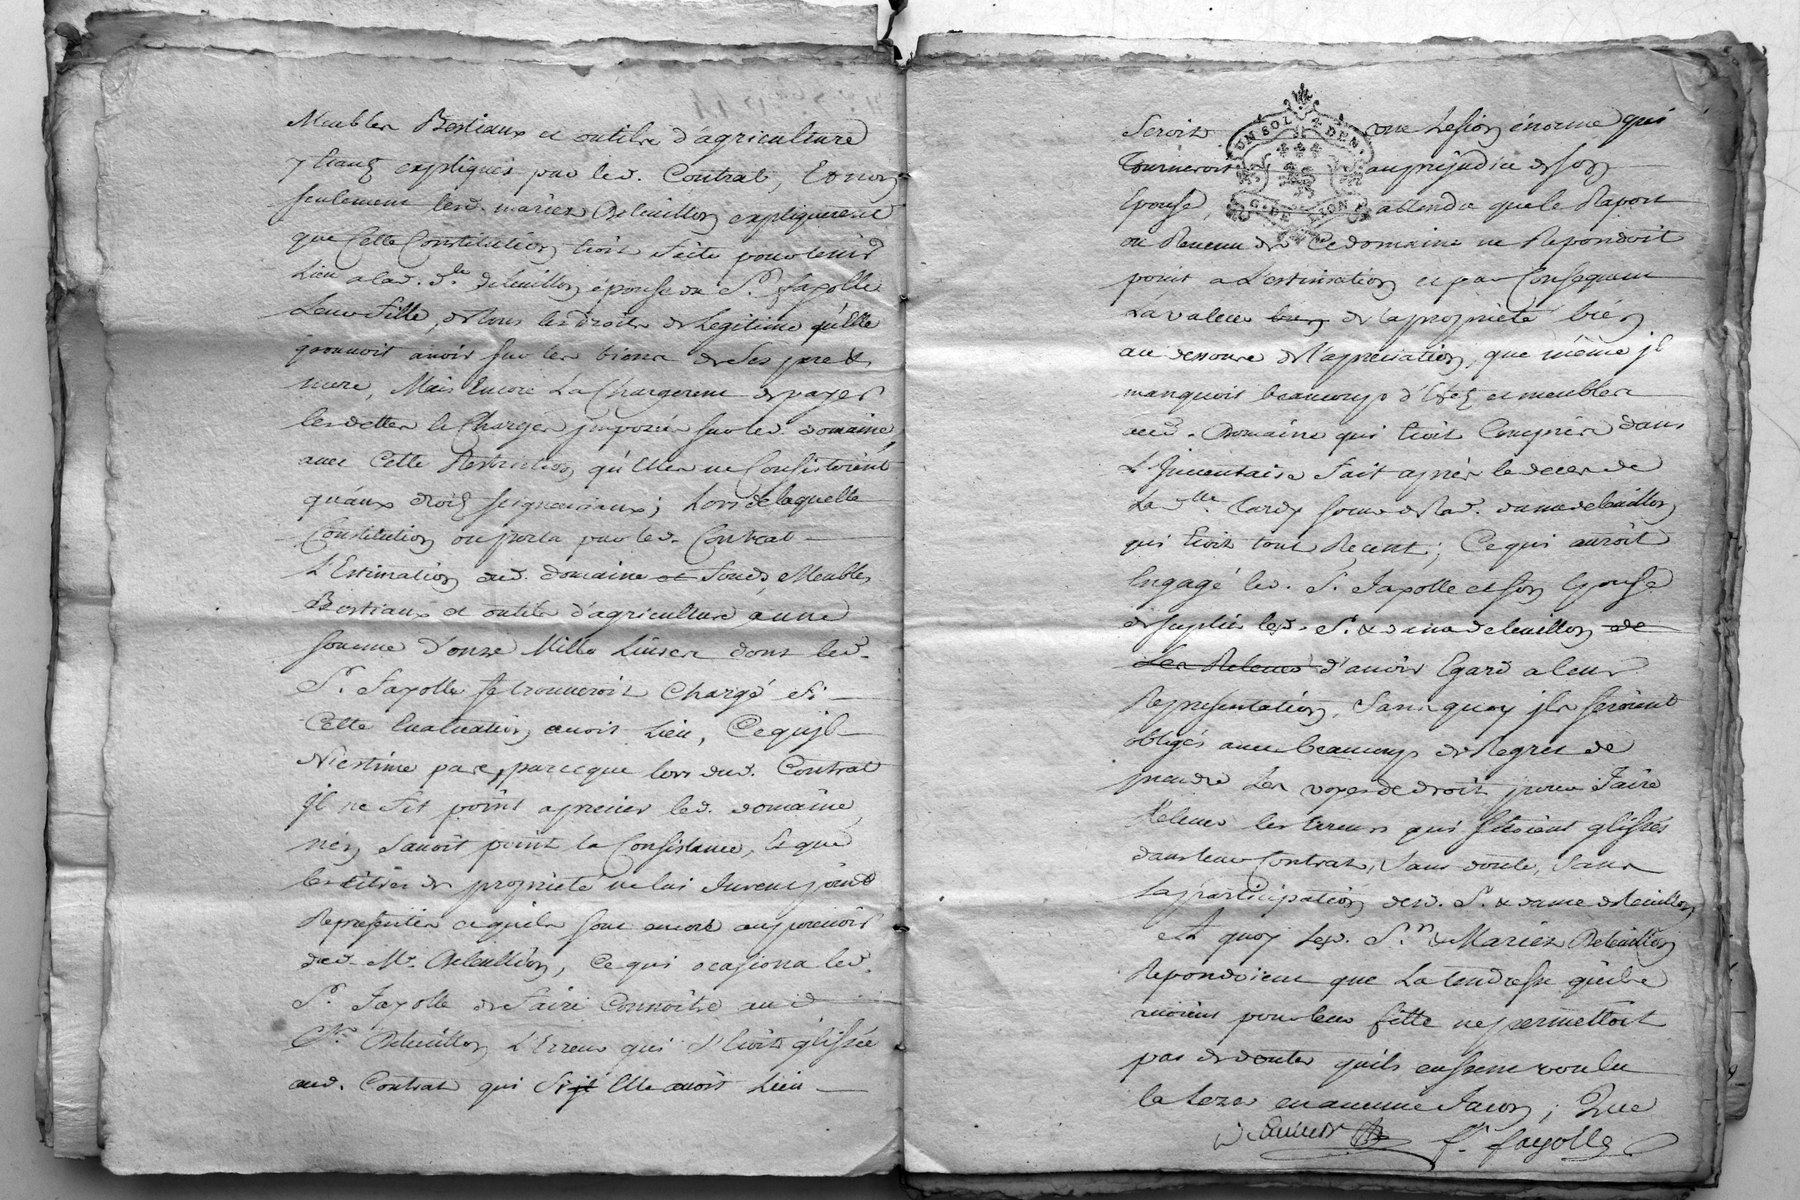 Meubles Bestiaux et outils d'agriculture
expliqués par led. Contrat, Et non
seulement lesd. mariez Deleuillon expliquerent
que Cette Constitution étoit faite pour tenir
Lieu a lad. d.lle Deleuillon épouse du S.r fayolle
Leur fille, de tous les droits de Legitime qu'elle
pouvoit avoir sur les biens de Ses pere &
mere, Mais Encore La Chargerent de payer
les dettes & Charges imposées sur led. domaine,
avec Cette Restriction qu'Elles ne Consistoient
qu'aux droits seigneuriaux; Lors de laquelle
Constitution on porta par led. Contrat
L'Estimation dud. domaine et fonds Meubles
Bestiaux et outils d'agriculture a une
somme d'onze Mille Livres dont led.
S.r fayolle se trouveroit Chargé si
Cette Evaluation avoit Lieu, Ce qu'il
N'estime pas, parceque lors dud. Contrat
Il ne fit point aprecier led. domaine
n'en savoit point la Consistance, Et que
les titres de propriété ne lui furent point
Representés et qu'ils sont encore au pouvoir
dud. Mr. Deleuillon, Ce qui ocasiona led.
S.r fayolle de faire Connoitre aud.
Mr. Deleuillon L'Erreur qui s'Etoit glissée
aud. Contrat qui Si Elle avoit Lieu
Seroit une Lesion énorme qui
Tourneroit au préjudice de son
Epouse, attendu que le Raport
ou Revenu de Ce domaine ne Repondoit
point a L'estimation et par Consequent
La valeur de la propriété bien
au dessous de l'apreciation, que même il
manquoit beaucoup d'Effets et meubles
aud. Domaine qui étoit Compris dans
L'Inventaire fait après le deces de
La d.lle Tardy soeur de lad. dame deleuillon
qui Etoit tout Recent; Ce qui auroit
Engagé led. S.r fayolle et son Epouse
de suplier lesd. S.r & dame deleuillon de
Les Relever d'avoir Egard a leur
Representation, Sans quoy ils seroient
obligés avec beaucoup de Regret de
prendre Les voyes de droit pour faire
Relever les Erreurs qui s'Etoient glissés
dans leur Contrat, sans doute, sans
La participation desd. S.r & dame deleuillon
A quoy Lesd. S.rs Mariez Deleuillon
Repondoient que La tendresse qu'ils
avoient pour leur fille ne permettoit
pas de douter qu'ils eussent voulu
la Lezer en aucune facon; Que
f. fayolle
UN SOL 4 DEN.
G. DE LION